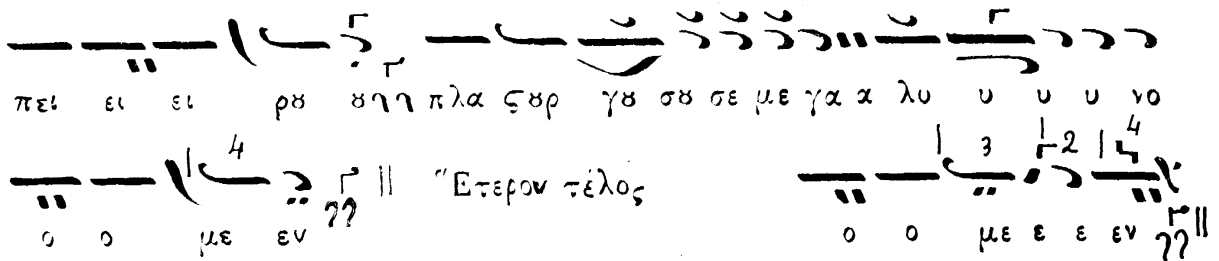 πει ει ει ρȣ ȣ πλα ςȣρ γȣ σȣ σε με γα α λυ υ υ υ νο
4 3 2 4
ο ο με εν Ἕτερον τέλος ο ο με ε ε εν